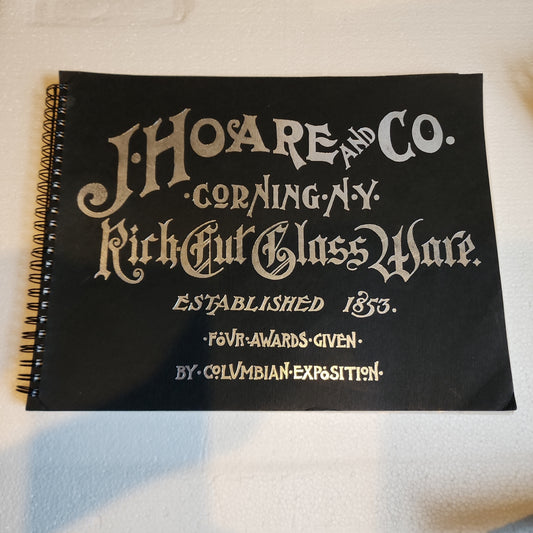 J. HOARE AND CO.
·CORNING·N·Y·
Rich Cut Glass Ware.
ESTABLISHED 1853.
·FOVR·AWARDS·GIVEN·
BY·COLVMBIAN·EXPOSITION·